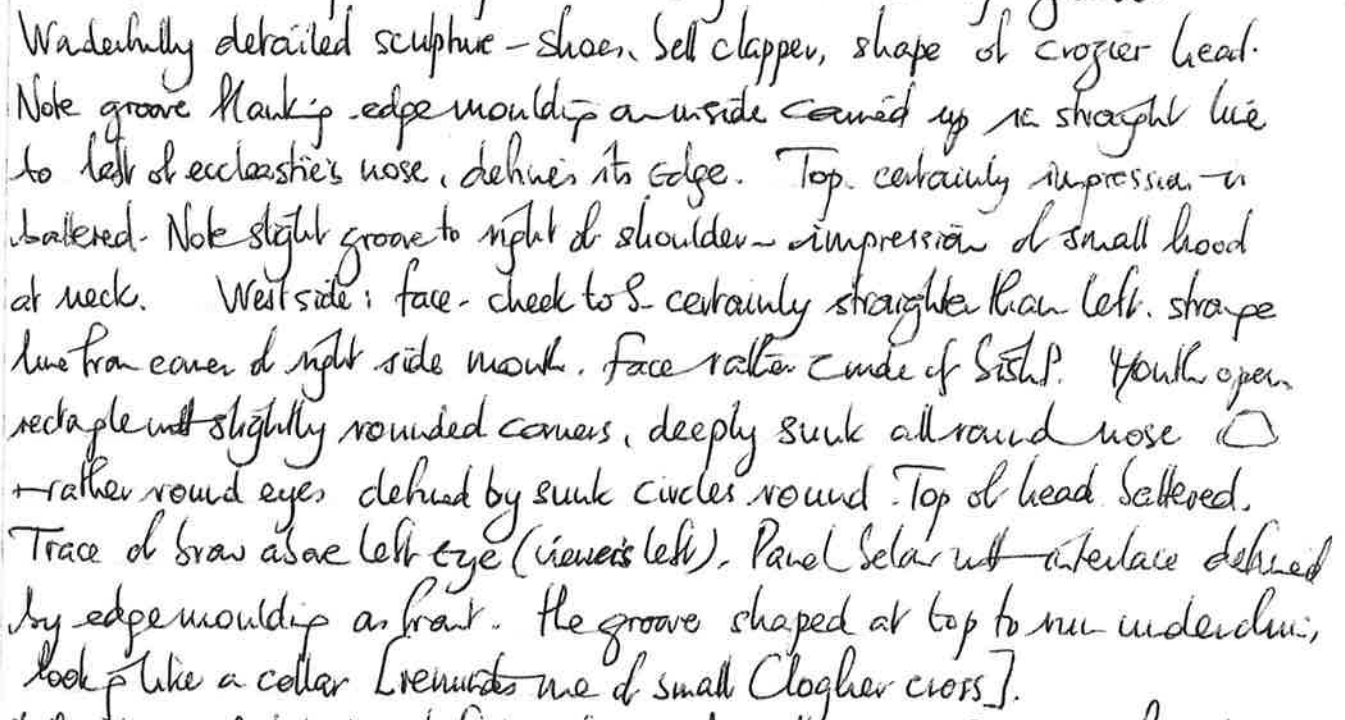 Wonderfully detailed sculpture - shoes, bell clapper, shape of crozier head.
Note groove flanking edge moulding on inside carried up in straight line
to left of ecclesastic's nose, defines its edge. Top certainly impression is
battered. Note slight groove to right of shoulder - impression of small hood
at neck. West side: face - cheek to S certainly straighter than left. strange
line from corner of right side mouth. face rather crude cf Bishop. Mouth open
rectangle with slightly rounded corners, deeply sunk all round nose
+ rather round eyes defined by sunk circles round. Top of head battered.
Trace of brow above left eye (viewer's left). Panel below with interlace defined
by edge moulding as front. The groove shaped at top to run under chin,
looking like a collar [reminds me of small Clogher cross].